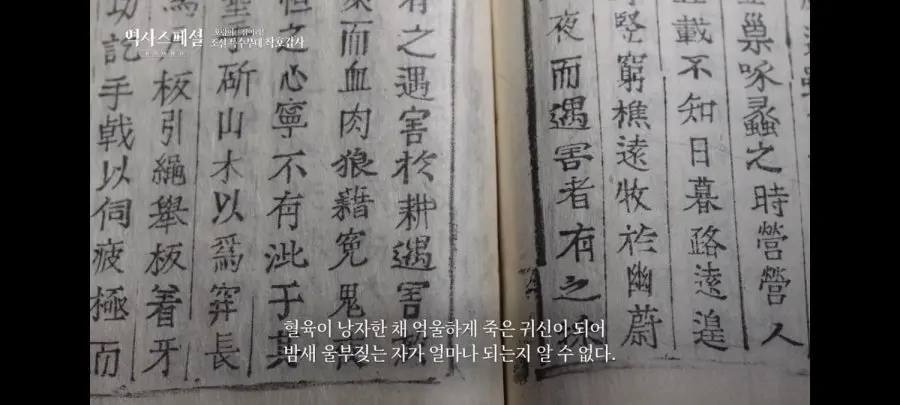 역사스페셜
조선 특수부대 착호갑사
巢啄蝨之時營營人
載不知日暮路遠遑
竪窮樵遠牧於幽蔚
夜而遇害者有之採
有之遇害於耕遇害
而血肉狼藉冤鬼
之心寧不有泚于其
斫山木以爲穽長
板引繩舉板着牙
訖手戟以伺疲極而
혈육이 낭자한 채 억울하게 죽은 귀신이 되어
밤새 울부짖는 자가 얼마나 되는지 알 수 없다.